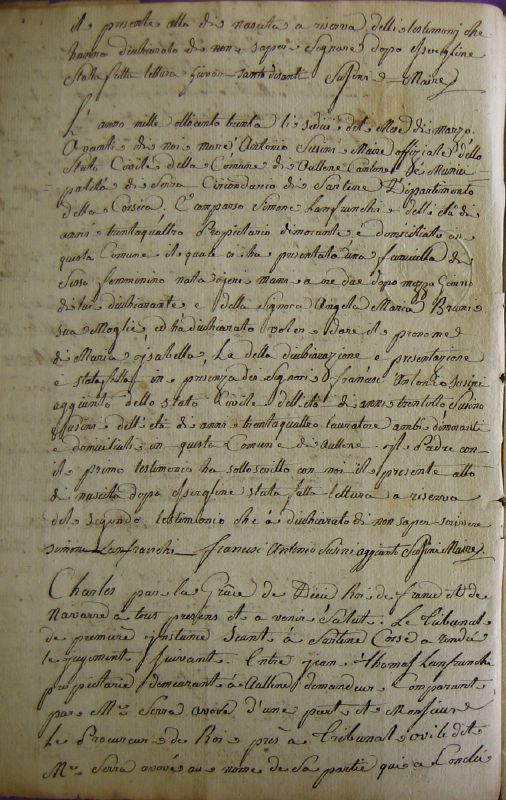 il presente atto di nascita a riserva delli testimonj che
hanno dichiarato di non saper Segnare dopo essergline
Stata fatta lettura Susini Maire
L'anno mille ottocento trenta li sedici del Mese di Marzo
Avanti di noi Maire Antonio Susini Maire offiziale dello
Stato Civile della Comune di Aullene Cantone e Munici
palità di Serra Circondario di Sartene Dipartimento
della Corsica. È comparso Simone Lanfranchi dell'età di
anni trentaquattro Propietario dimorante e domiciliato in
questa Comune il quale ci ha presentato una fanciulla di
Sesso femminino nata ogini mane a ore due dopo mezzo Giorno
di lui dichiarante e della Signora Angela Maria Bruni
sua Moglie ed ha dichiarato voler dare il pronome
di Maria Isabella, La detta dichiarazione e presentazione
è stata fatta in presenza dei Signori francesc' Antonio Susini
aggiunto dello Stato Civile dell'età di anni trentotto Susino
Susini dell'età di anni trentaquattro lavratore ambi dimoranti
e domiciliati in questa Comune di Aullene. Il Padre con
il primo testimonio ha sottoscritto con noi il presente atto
di nascita dopo essergline stata fatta lettura a riserva
del segundo testimonio che à dichiarato di non saper scrivere
Simone Lanfranchi francesc Antonio Susini aggiunto Susini Maire
Charles par la Grâce de Dieu Roi de france et de
Navarre a tous presens et a venir Salut. Le Tribunal
de premiere instance Seant à Sartene Corse a rendu
le jugement Suivant. Entre jean Thomas Lanfranchi
propietaire demeurant à Aullene demandeur Comparant
par Mre Serra avoué d'une part et Monsieur
Le Procureur de Roi près a Tribunal Civile dit
Me Serra avoué au nome de Sa partie qui a Conclu